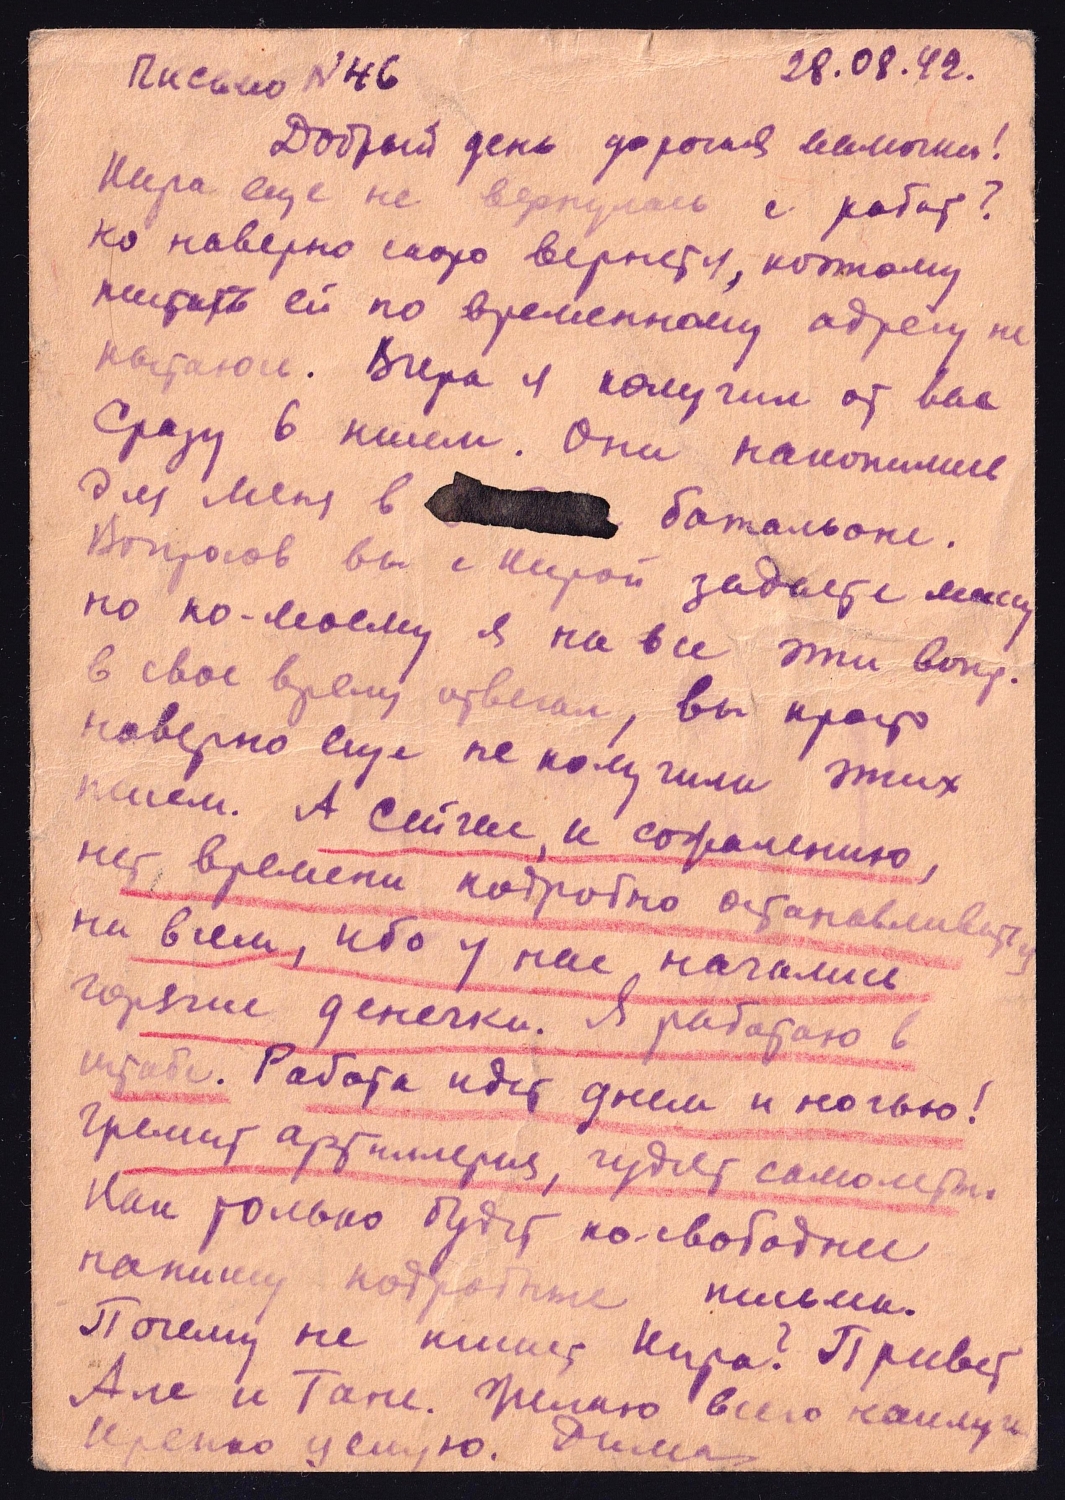 Письмо N 46 28.08.42.
Добрый день дорогая мамочка!
Кира еще не вернулась с работ?
Но наверно скоро вернется, поэтому
писать ей по временному адресу не
пытаюсь. Вчера я получил от вас
Сразу 6 писем. Они накопились
для меня в батальоне.
Вопросов вы с Кирой задаете массу
но по-моему я на все эти вопр.
в свое время отвечал, вы просто
наверно еще не получили этих
писем. А сейчас, к сожалению,
нет времени подробно останавливаться
на всем, ибо у нас начались
горячие денечки. Я работаю в
штабе. Работа идет днем и ночью!
Гремит артиллерия, гудят самолеты.
Как только будет по-свободнее
напишу подробные письма.
Почему не пишет Кира? Привет
Але и Тане. Желаю всего наилучш
Крепко целую. Дима